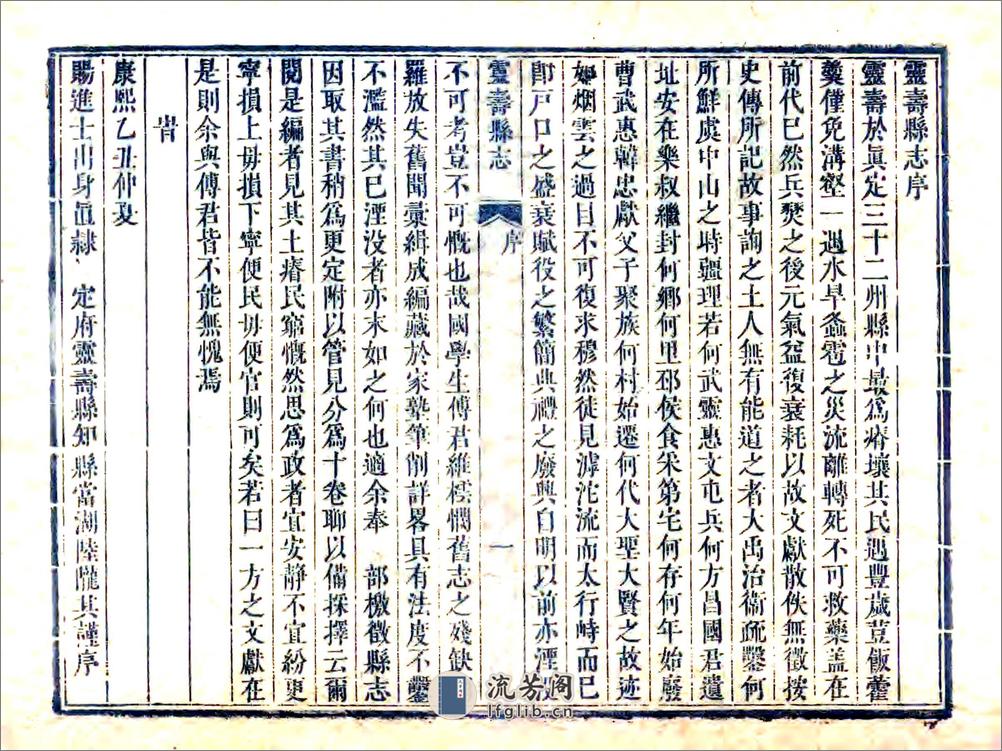 靈壽縣志序
靈壽於眞定三十二州縣中最爲瘠壤其民遇豐歲荳飯藿
羹僅免溝壑一遇水旱螽雹之災流離轉死不可救藥盖在
前代已然兵燹之後元氣益復衰耗以故文獻散佚無徵按
史傳所記故事詢之土人無有能道之者大禹治衞疏鑿何
所鮮虞中山之時疆理若何武靈惠文屯兵何方昌國君遺
址安在樂叔繼封何鄉何里邳侯食采第宅何存何年始廢
曹武惠韓忠獻父子聚族何村始遷何代大聖大賢之故迹
如烟雲之過目不可復求穆然徒見滹沱流而太行峙而已
卽戸口之盛衰賦役之繁簡典禮之廢興自明以前亦湮
靈壽縣志
序
一
不可考豈不可慨也哉國學生傅君維橒憫舊志之殘缺
羅放失舊聞彙緝成編藏於家塾筆削詳畧具有法度不鑿
不濫然其已湮没者亦末如之何也適余奉 部檄徵縣志
因取其書稍爲更定附以管見分爲十卷聊以備採擇云爾
閱是編者見其土瘠民窮慨然思爲政者宜安静不宜紛更
寧損上毋損下寧便民毋便官則可矣若曰一方之文獻在
是則余與傅君皆不能無愧焉
旹
康熙乙丑仲夏
賜進士出身直隷 定府靈壽縣知縣當湖陸隴其謹序
流芳阁
lfglib.cn